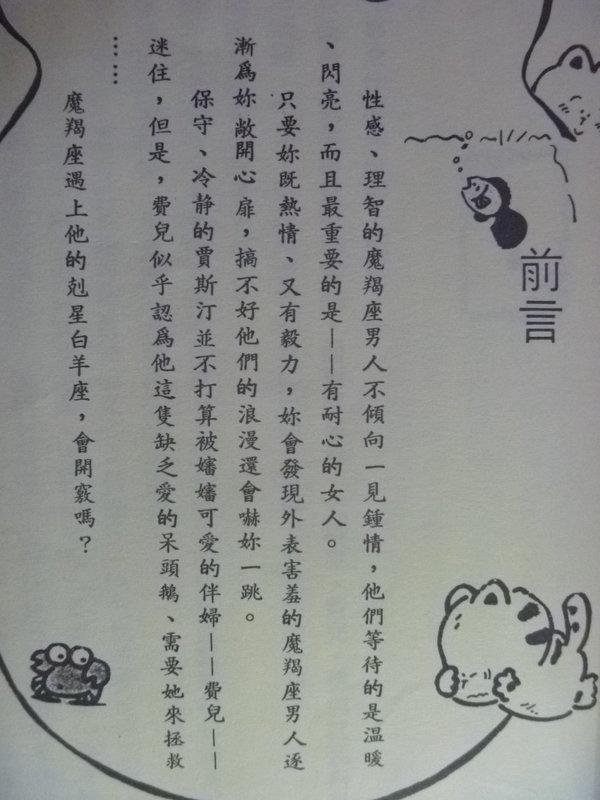 前言
性感、理智的魔羯座男人不傾向一見鍾情，他們等待的是溫暖
、閃亮，而且最重要的是——有耐心的女人。
只要妳既熱情、又有毅力，妳會發現外表害羞的魔羯座男人逐
漸爲妳敞開心扉，搞不好他們的浪漫還會嚇妳一跳。
保守、冷靜的賈斯汀並不打算被嬸嬸可愛的伴婦——費兒——
迷住，但是，費兒似乎認爲他這隻缺乏愛的呆頭鵝、需要她來拯救
……
魔羯座遇上他的剋星白羊座，會開竅嗎？